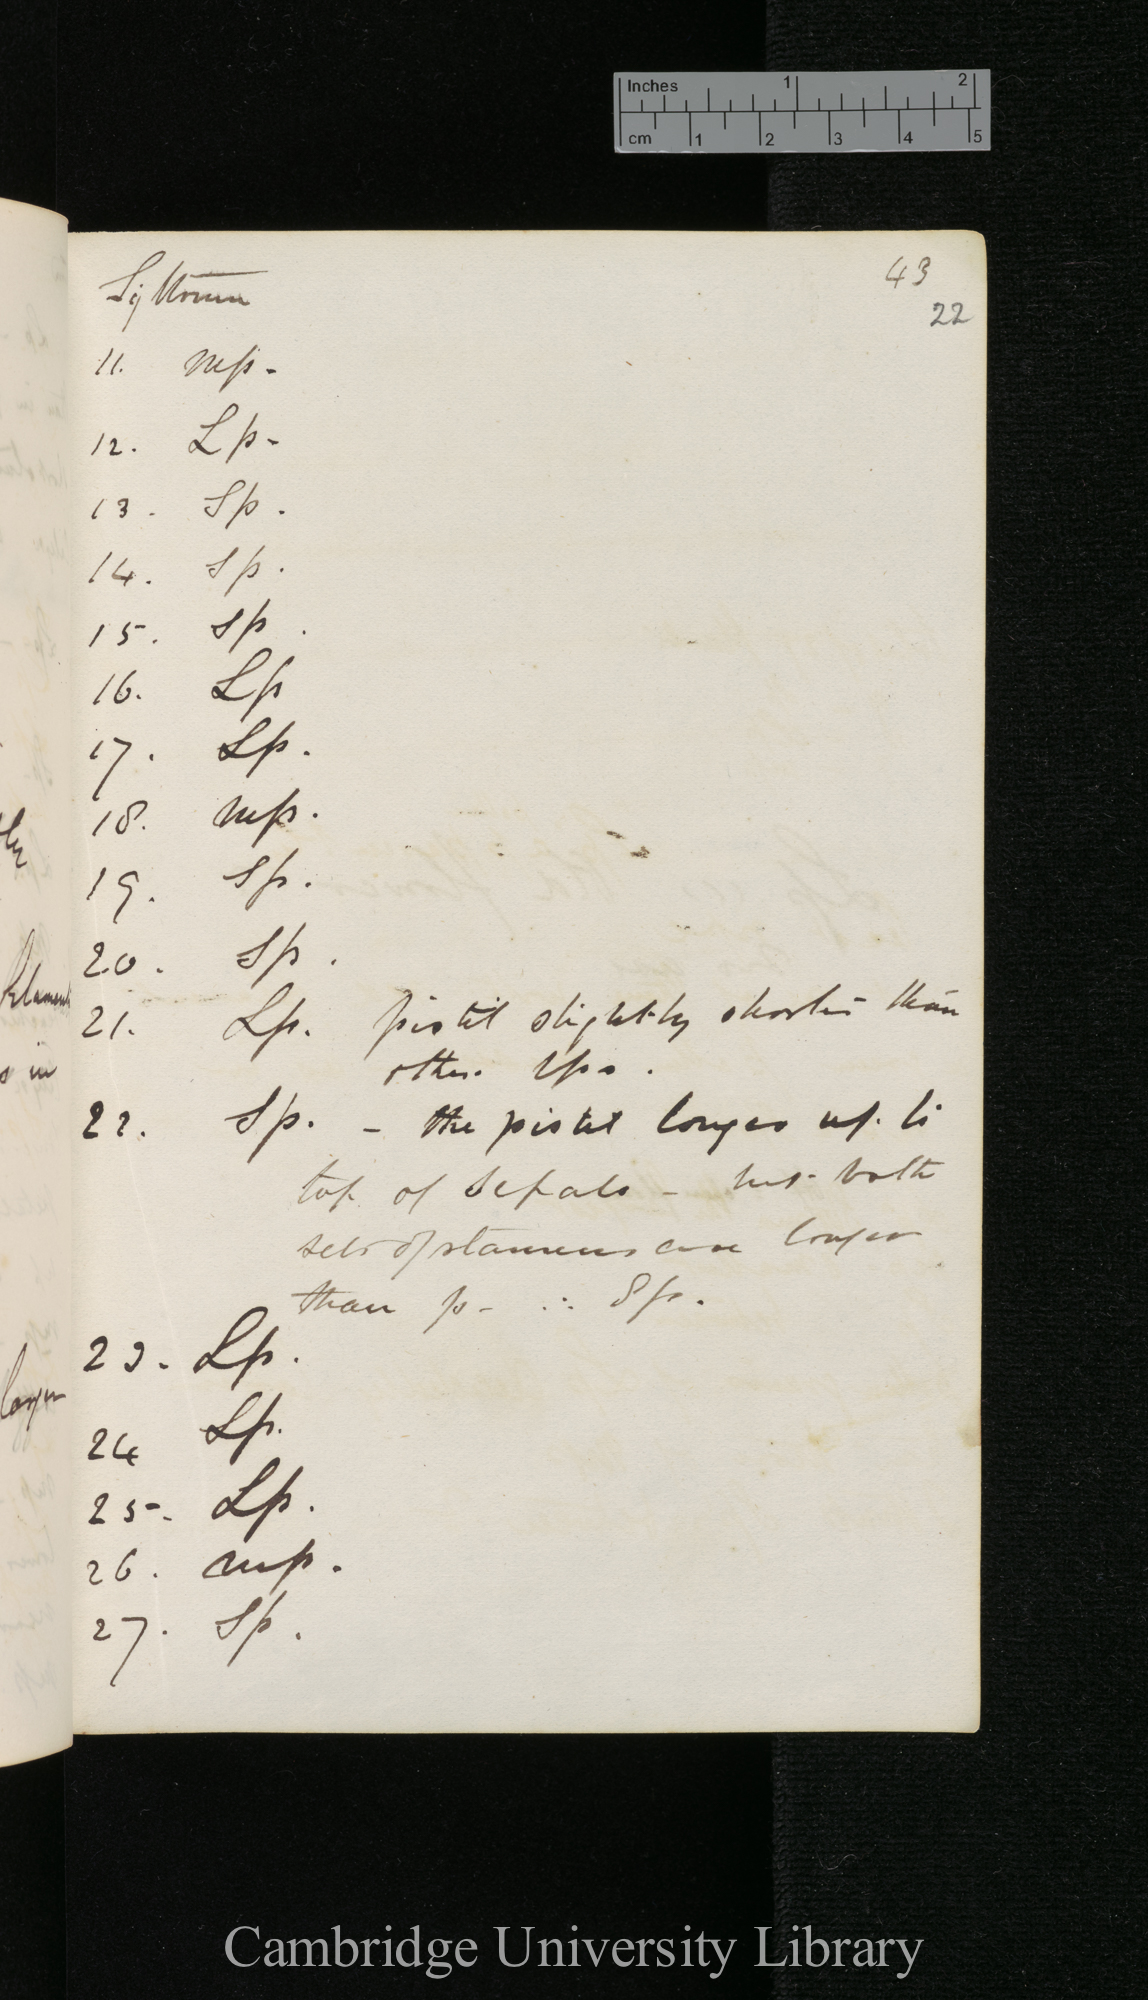 Inches 1 2
cm 1 2 3 4 5
43
22
Lythrum
11. mp-
12. Lp-
13. Sp.
14. Sp.
15. Sp.
16. Lp
17. Lp.
18. mp.
19. Sp.
20. Sp.
21. Lp. pistil slightly shorter than
other Lps.
22. Sp. - the pistil longer up to
top of Sepals - but both
sets of stamens are longer
than p- ∴ Sp.
23. Lp.
24 Lp.
25. Lp.
26. mp.
27. Sp.
filaments
s in
longer
Cambridge University Library